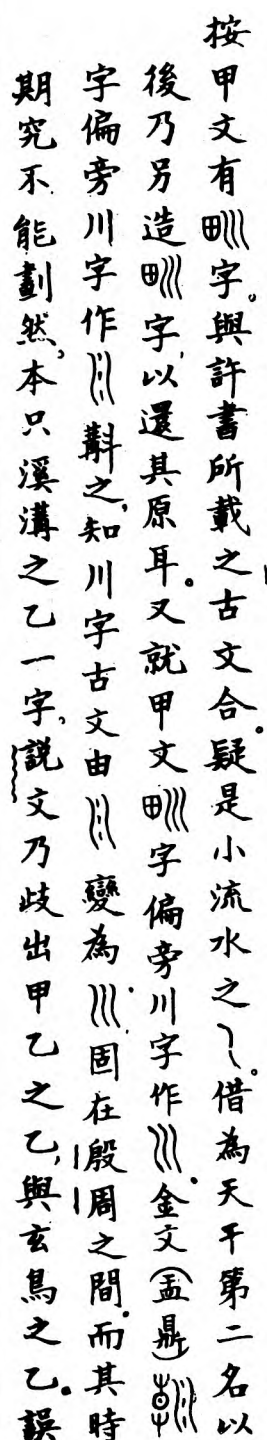 按甲文有𤰕字。與許書所載之古文合。疑是小流水之乁。借為天干第二名以
後乃另造𤰕字，以還其原耳。又就甲文𤰕字偏旁川字作巛。金文（盂鼎）
字偏旁川字作 斠之，知川字古文由 變為巛，固在殷周之間。而其時
期究不能劃然，本只溪溝之乙一字，說文乃歧出甲乙之乙，與玄鳥之乙。誤